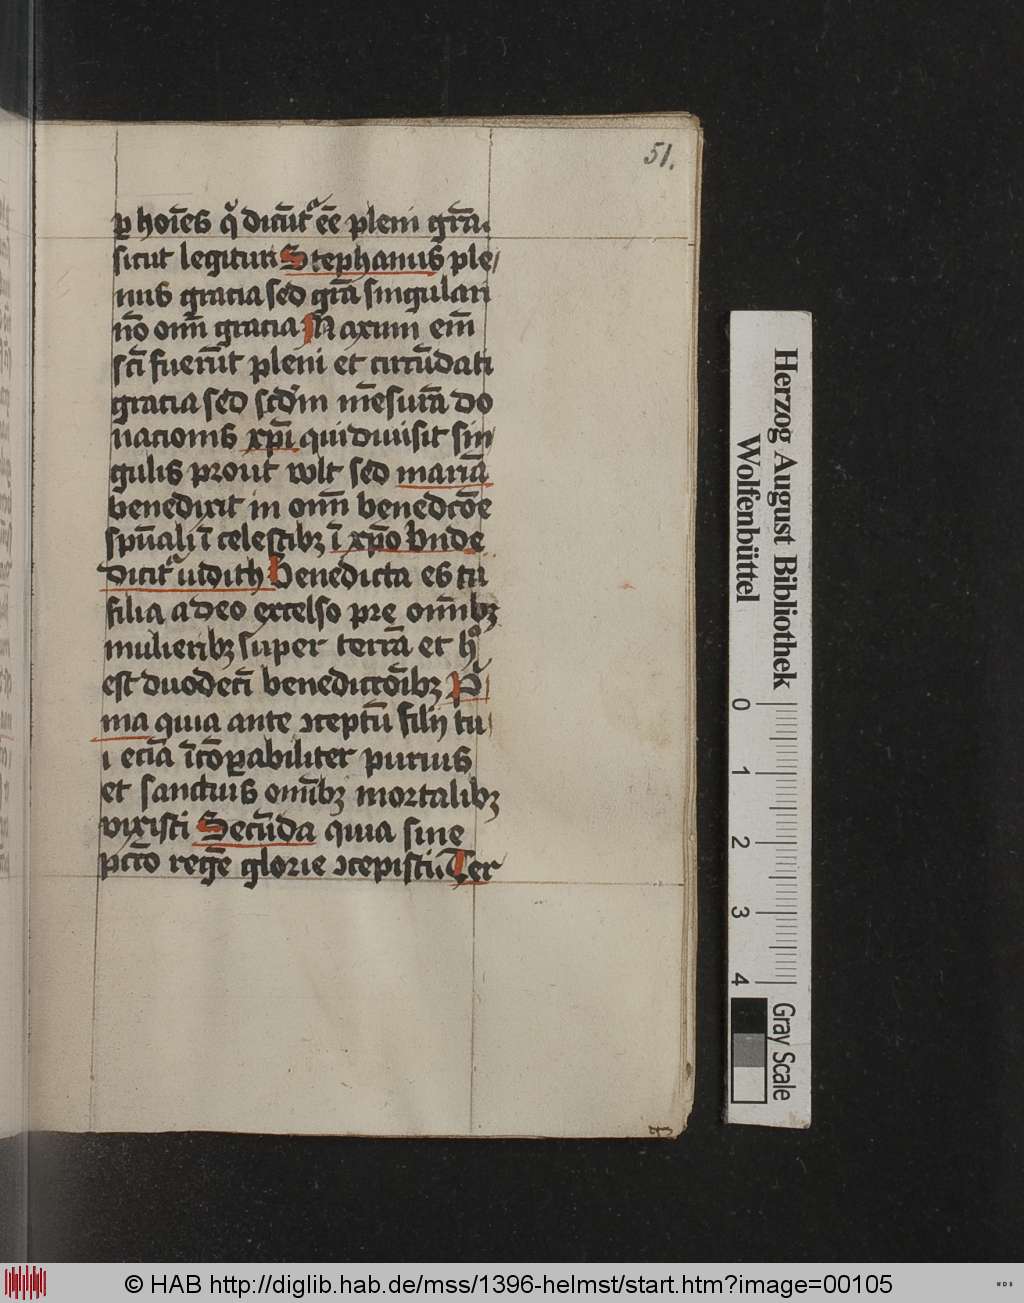 51.
ꝑ hoı̄es qͥ dicūtᷣ eē pleni gr̄a.
sicut legitur Stephanus ple/
nus gracia sed gr̄a singulari
nō om̄i gracia Maxum em̄
scī fuerūt pleni et circūdati
gracia sed scdm̄ mēsurā do
nacionis xp̄i qui diuisit sin/
gulis prout wlt sed mariā
benedixit in om̄i benedcōe
spūali ī celestibꝫ ī xp̄o Vnde
dicitᷣ iudith Benedicta es tu
filia a deo excelso pre om̄ibꝫ
mulieribꝫ super terrā et hͦ
est duodecī benedictōibꝫ Pͥ/
ma quia ante ꝯceptū filij tu/
i eciā īcōꝑabiliter purius
et sanctius om̄ibꝫ mortalibꝫ
vixisti Secūda quia sine
pctō regē glorie ꝯcepisti Ter
Herzog August Bibliothek
Wolfenbüttel
0 1 2 3 4
Gray Scale
© HAB http://diglib.hab.de/mss/1396-helmst/start.htm?image=00105